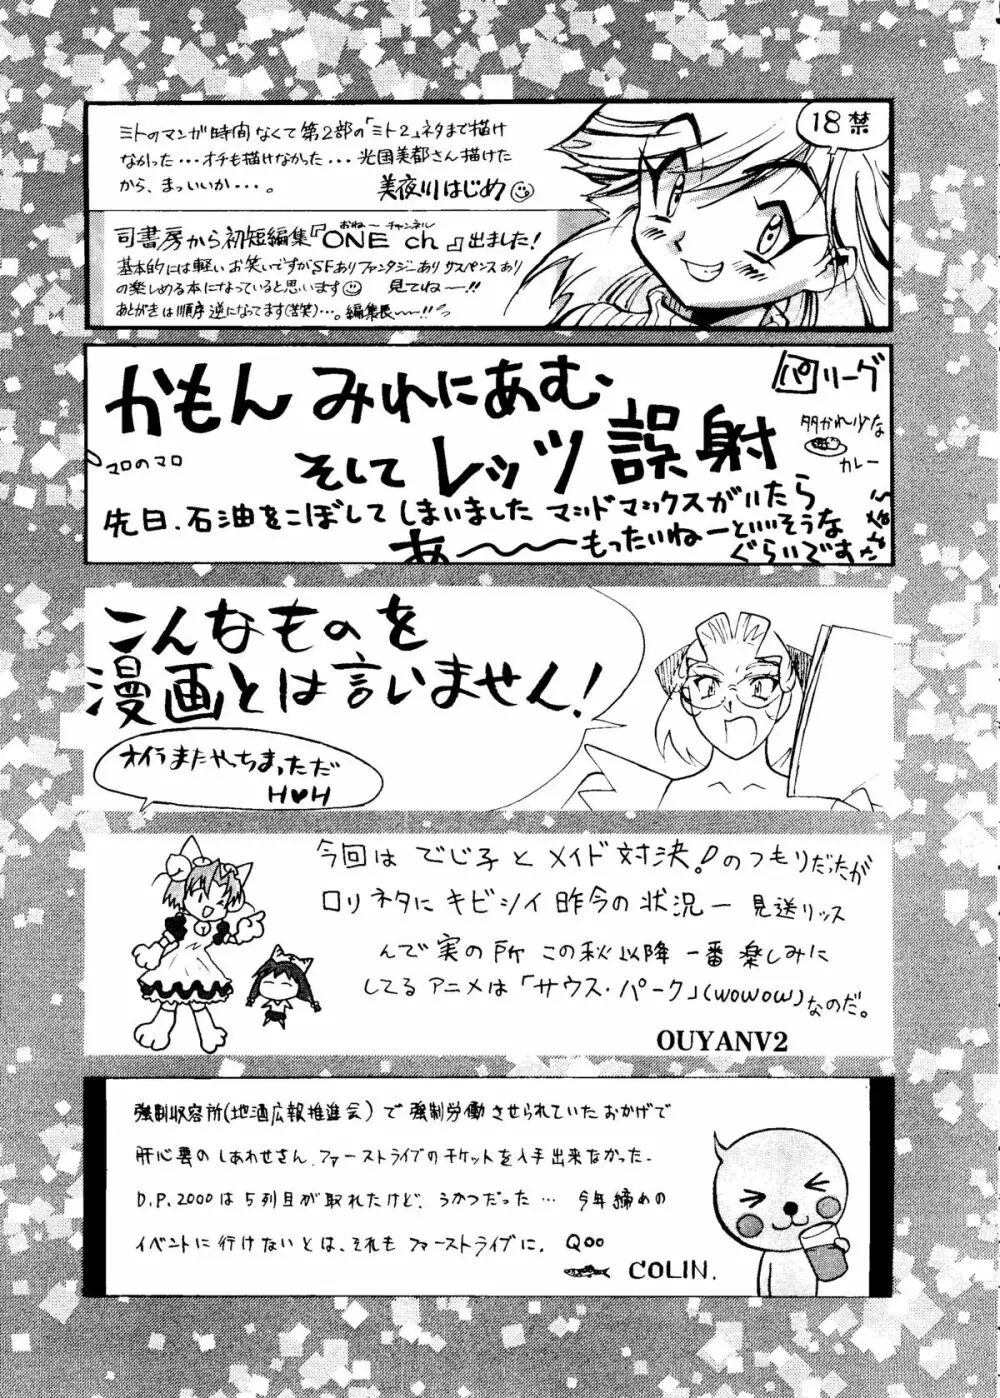 ミトのマンガ時間なくて第2部の「ミト2」ネタまで描け
なかった・・・オチも描けなかった・・・光国美都さん描けた
から、まっいいか・・・。
美夜川はじめ
18禁
司書房から初短編集『ONE ch』出ました!
おねー チャンネル
基本的には軽いお笑いですがSFありファンタジーありサスペンスあり
の楽しめる本になっていると思います 見てねー!!
あとがきは順序逆になってます(苦笑)・・・。編集長〜〜!!
かもん みれにあむ
パリーグ
そして レッツ 誤射
マロのマロ
カレー
先日、石油をこぼしてしまいました マッドマックスがいたら
あ〜〜〜もったいねーといいそうな
ぐらいです
こんなものを
漫画とは言いません!
オイラまたやっちまっただ
H♥H
今回は でじ子と メイド対決!のつもりだったが
ロリネタに キビシイ 昨今の 状況ー 見送リッス
んで 実の所 この秋以降 一番 楽しみに
してる アニメは「サウス・パーク」(WOWOW)なのだ。
OUYANV2
強制収容所(地酒広報推進会)で強制労働させられていたおかげで
肝心要の しあわせさん.ファーストライブのチケットを入手出来なかった.
D.P.2000は5列目が取れたけど、うかつだった… 今年締めの
イベントに行けないとは、それもファーストライブに. Qoo
COLIN.